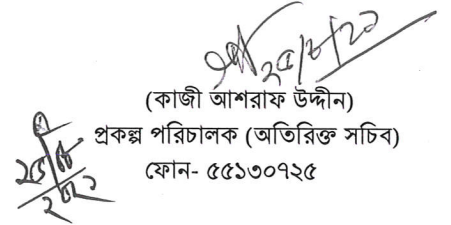 (কাজী আশরাফ উদ্দীন)
প্রকল্প পরিচালক (অতিরিক্ত সচিব)
ফোন- ৫৫১৩০৭২৫